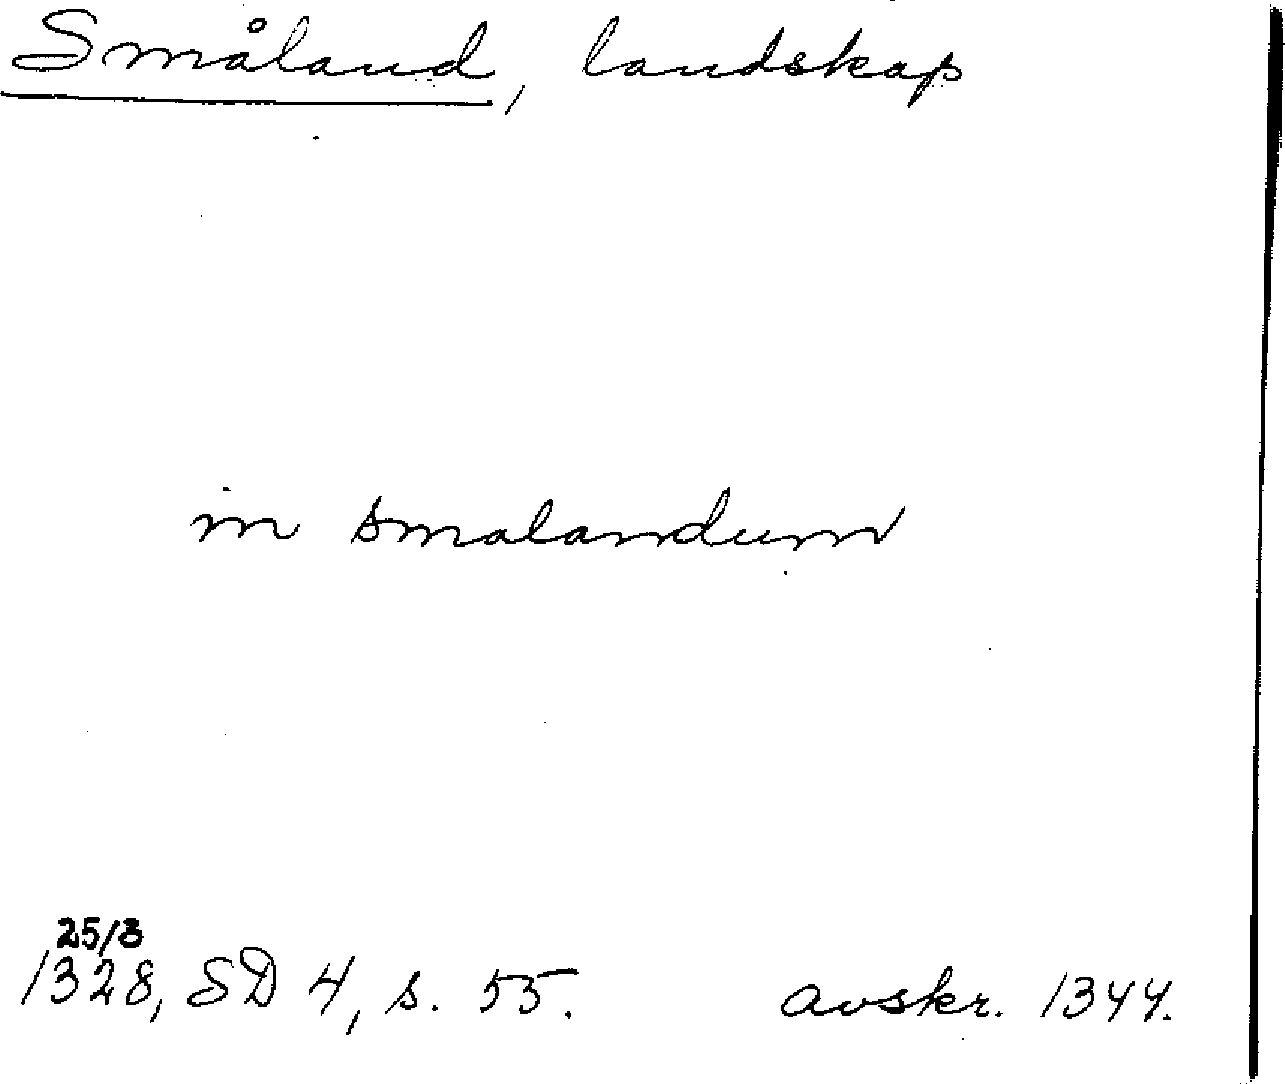 Småland, landskap
in smalandum
25/3
1328, SD 4, s. 55. avskr. 1344.